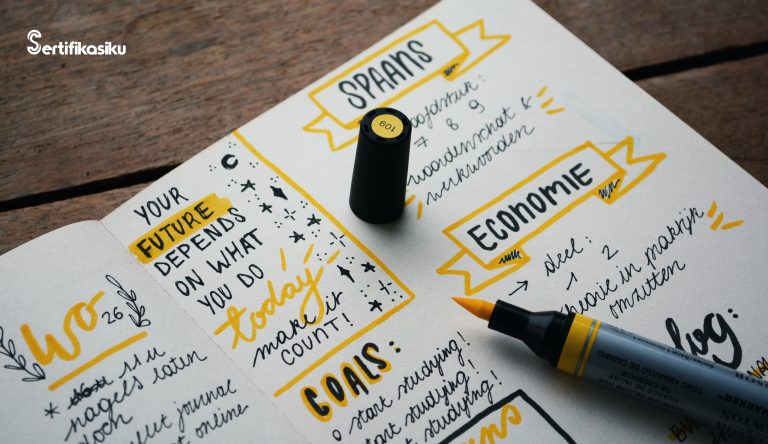 Sertifikasiku
YOUR
FUTURE
DEPENDS
ON WHAT
YOU DO
today
make it
COUNT!
Wo
26
* 11u
nagels laten
journal
online
GOALS:
o start studying!
start studying!
studying!
SPAANS
hoofdstuk:
7 8 9
woordenschat &
werkwoorden
ECONOMIE
→ deel:
1 2
in maktijk
omzetten
109